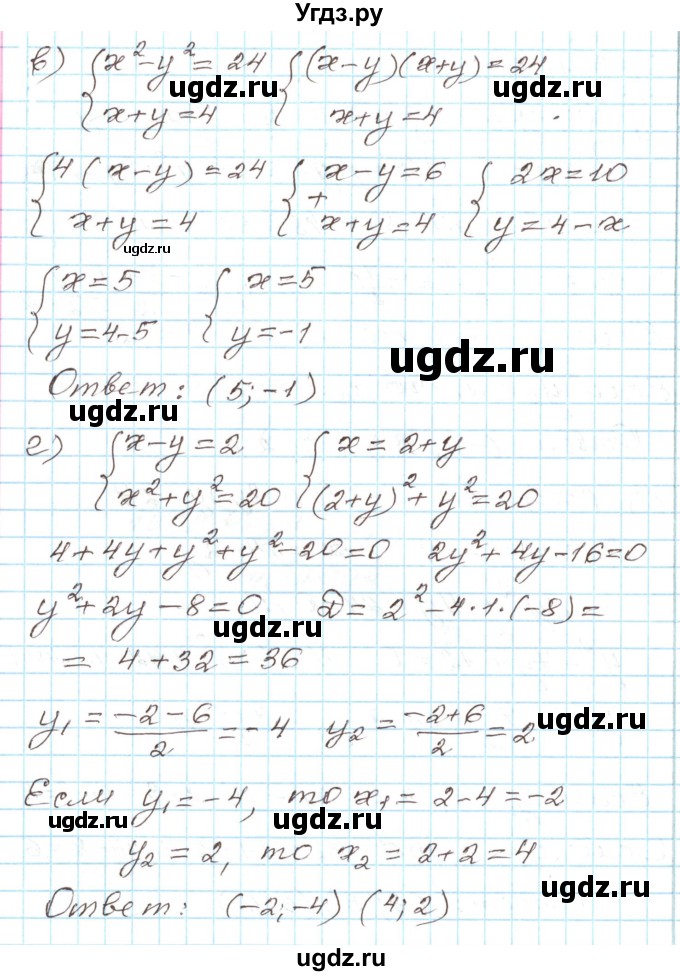 Угдз.ру
в) { x² - y² = 24 { (x-y)(x+y) = 24
x+y = 4 x+y = 4
ugdz.ru ugdz.ru
{ 4(x-y) = 24 { x-y = 6 { 2x = 10
+
x+y = 4 x+y = 4 y = 4-x
ugdz.ru
{ x = 5 { x = 5
y = 4-5 y = -1
ugdz.ru
Ответ: (5; -1)
ugdz.ru
г) { x-y = 2 { x = 2+y
x² + y² = 20 (2+y)² + y² = 20
4 + 4y + y² + y² - 20 = 0 2y² + 4y - 16 = 0
y² + 2y - 8 = 0 D = 2² - 4·1·(-8) =
ugdz.ru
= 4 + 32 = 36
y₁ = (-2-6)/2 = -4 y₂ = (-2+6)/2 = 2
ugdz.ru
Если y₁ = -4, то x₁ = 2-4 = -2
ugdz.ru ugdz.ru
y₂ = 2, то x₂ = 2+2 = 4
ugdz.ru ugdz.ru
Ответ: (-2; -4) (4; 2)